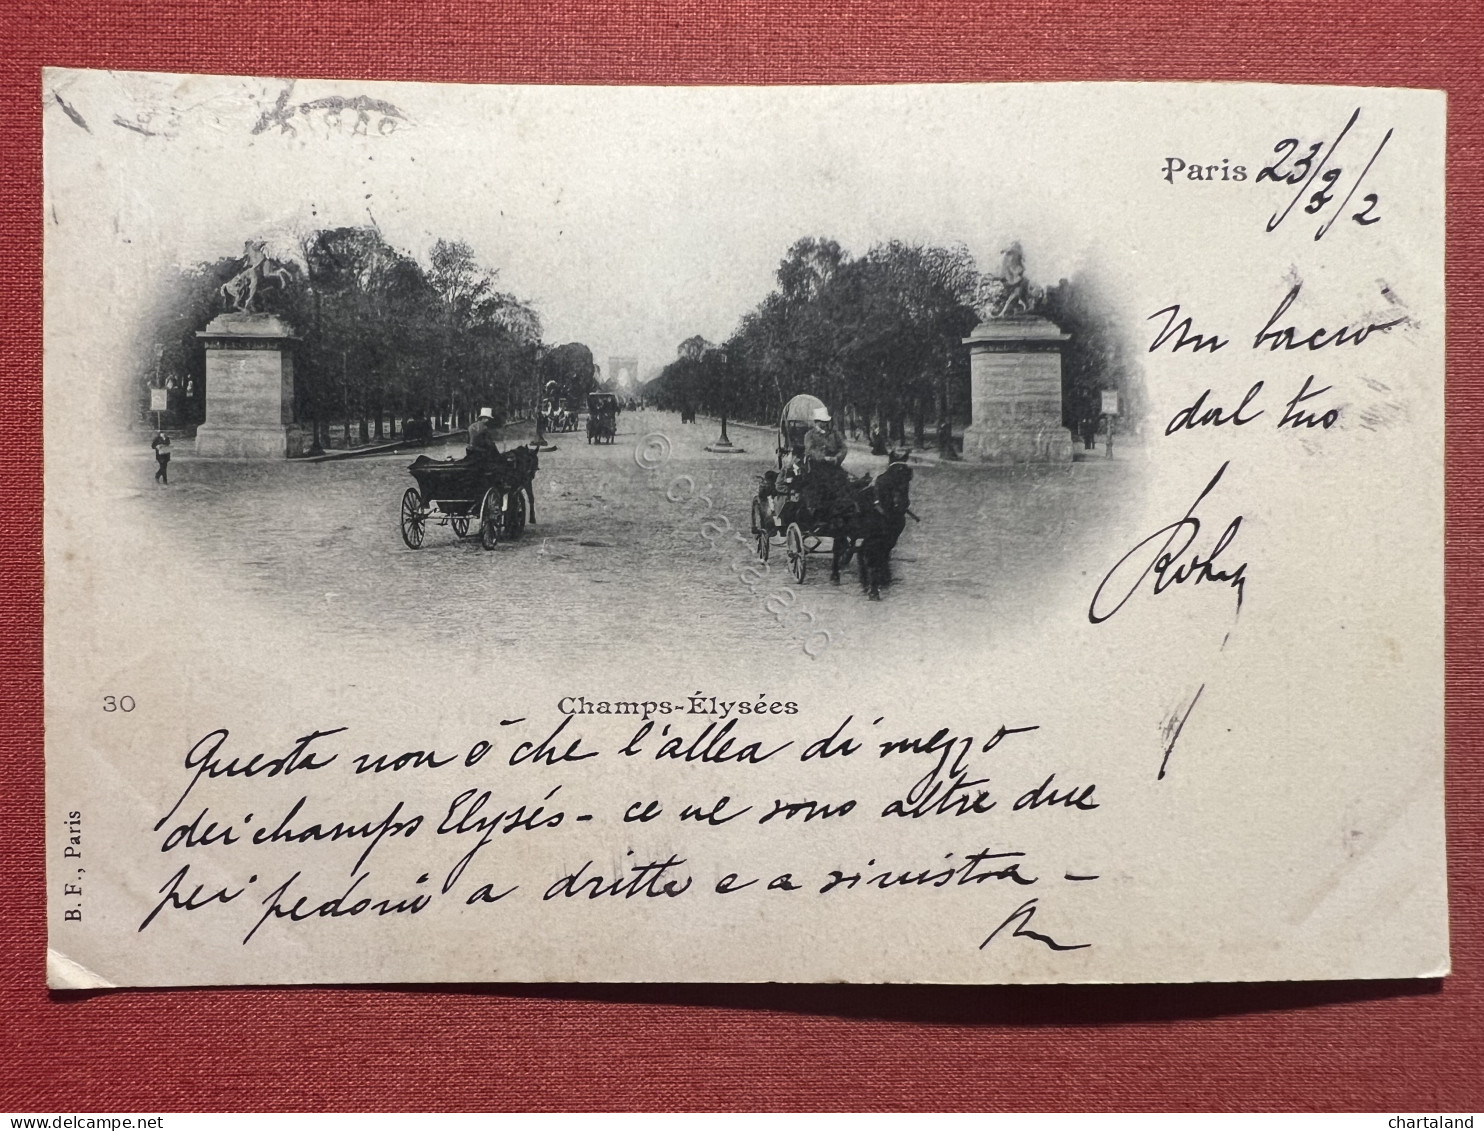 PARIS
Paris 23/2/2
Un bacio
dal tuo
© chartaland
30
Champs-Élysées
Questa non è che l'allea di mezzo
dei champs Elysés - ce ne sono altre due
pei pedoni a dritta e a sinistra -
B. F., Paris
delcampe.net
chartaland